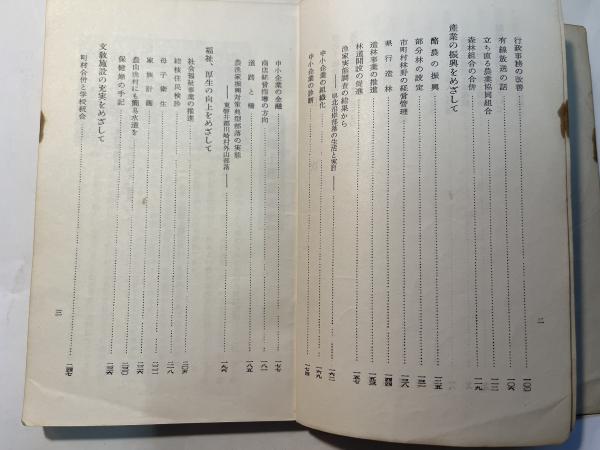 行政事務の改善……一〇〇
有線放送の話……一〇六
立ち直る農業協同組合……一一三
森林組合の合併……一一九
産業の振興をめざして
酪農の振興……一二五
部分林の設定……一三三
市町村林野の経営管理……一三八
県行造林……一四四
造林事業の推進……一五三
林道開設の促進……一五七
漁家実態調査の結果から
――県北沿岸部落の生活と家計――……一六二
中小企業の組織化……一六九
中小企業の診断……一七四
二
中小企業の金融……一七七
商店経営指導の方向……一八一
道路と橋……一八五
農漁家振興対策典型部落の実態
――東磐井郡川崎村外山部落――……一九六
福祉、厚生の向上をめざして
社会福祉事業の推進……二〇五
結核住民検診……二一八
母子衛生……二二二
家族計画……二二六
農山漁村にも簡易水道を……二三〇
保健婦の手記……二三六
文教施設の充実をめざして
町村合併と学校統合……二四七
三